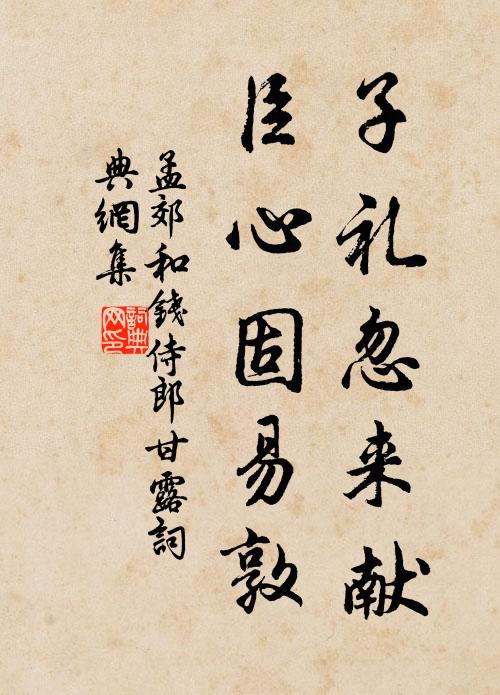 子礼忽来献
臣心固易敦
孟郊和錢侍郎甘露詞
典網集
詞典網印